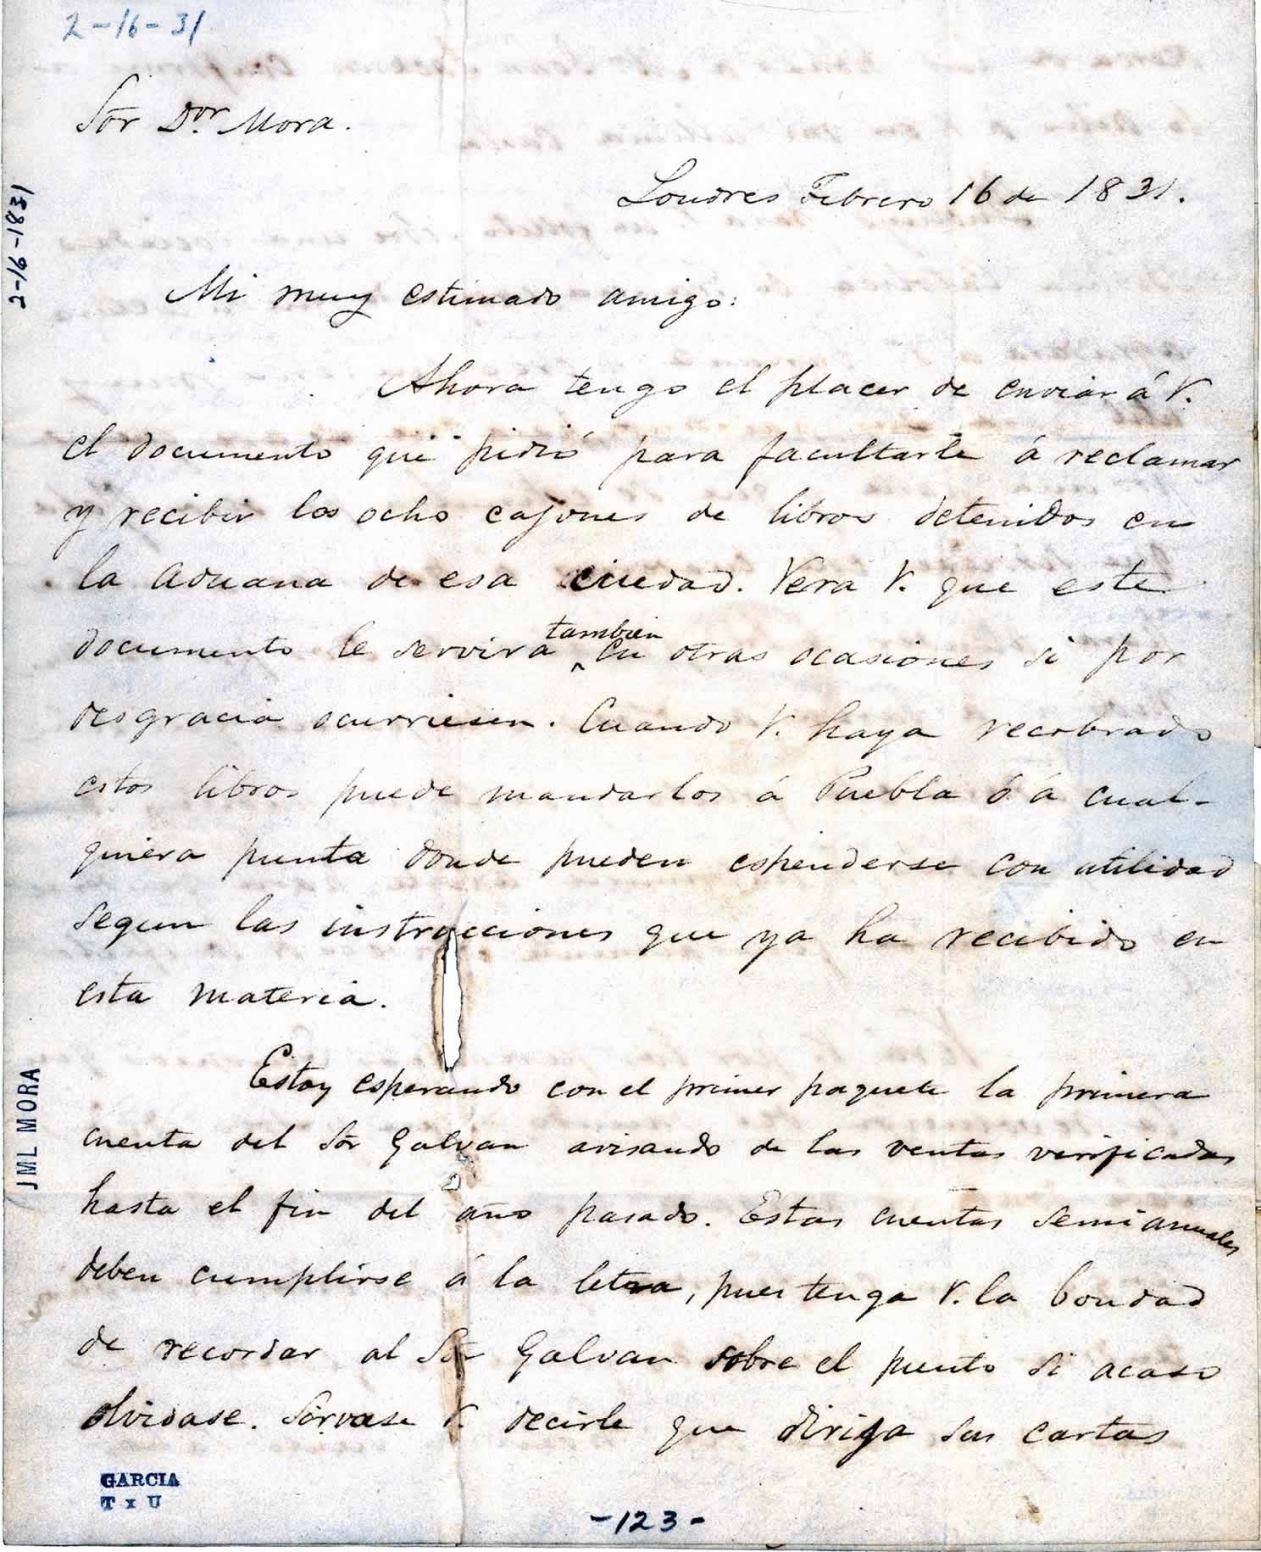 2-16-31
Sōr Dor. Mora.
Londres Febrero 16 de 1831.
2-16-1831
Mi muy estimado amigo:
Ahora tengo el placer de enviar á V.
el documento que pidió para facultarle á reclamar
y recibir los ocho cajones de libros detenidos en
la aduana de esa ciudad. Vera V. que este
documento le servira también en otras ocasiones si por
desgracia ocurriesen. Cuando V. haya recobrado
estos libros puede mandarlos á Puebla ó á cual-
quiera punta donde pueden espenderse con utilidad
segun las instrucciones que ya ha recibido en
esta materia.
Estoy esperando con el primer paquete la primera
cuenta del Sōr Galvan avisando de las ventas verificadas
hasta el fin del año pasado. Estas cuentas semianuales
deben cumplirse á la letra, pues tenga V. la bondad
de recordar al Sōr Galvan sobre el punto si acaso
olvidase. Sirvase V. decirle que dirija sus cartas
JML MORA
GARCIA
T x U
-123-